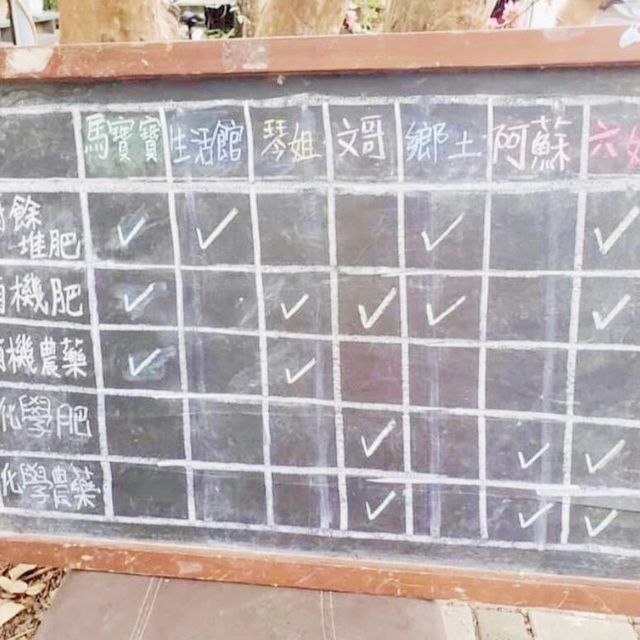 馬寶寶 生活館 琴姐 文哥 鄉土 阿蘇 六
餘
堆肥 ✓ ✓ ✓ ✓
機肥 ✓ ✓ ✓ ✓ ✓
機農藥 ✓ ✓
化學肥 ✓ ✓ ✓
化學農藥 ✓ ✓ ✓